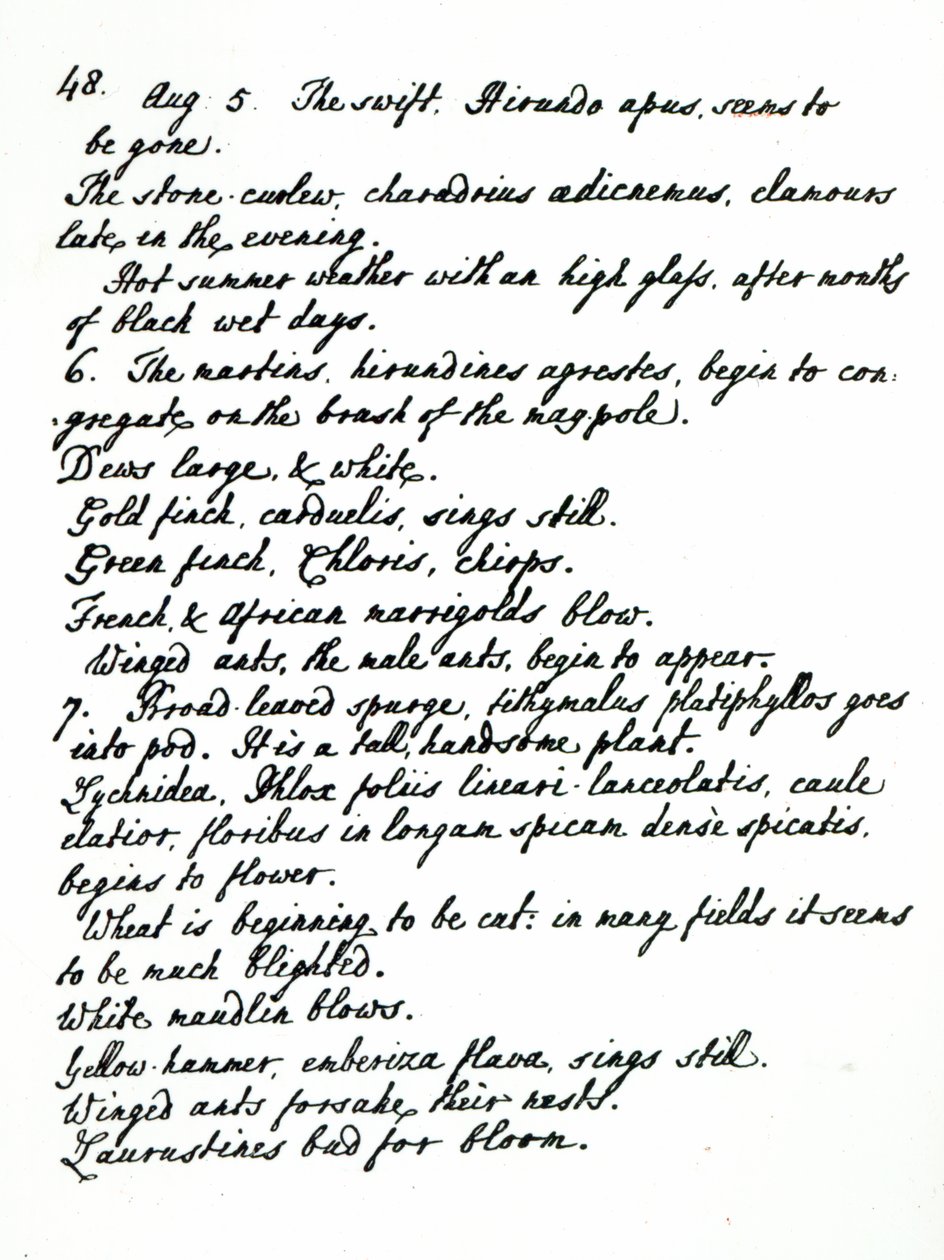 48.
Aug: 5. The swift, Hirundo apus, seems to
be gone.
The stone-curlew, charadrius ædicnemus, clamours
late in the evening.
Hot summer weather with an high glaſs, after months
of black wet days.
6. The martins, hirundines agrestes, begin to con:
:gregate on the brush of the may-pole.
Dews large, & white.
Gold finch, carduelis, sings still.
Green finch, Chloris, chirps.
French, & African marrigolds blow.
Winged ants, the male ants, begin to appear.
7. Broad-leaved spurge, tithymalus platiphyllos goes
into pod. It is a tall, handsome plant.
Lychnidea, Phlox foliis lineari-lanceolatis, caule
elatior, floribus in longam spicam densè spicatis,
begins to flower.
Wheat is beginning to be cut: in many fields it seems
to be much blighted.
White maudlin blows.
Yellow-hammer, emberiza flava, sings still.
Winged ants forsake their nests.
Laurustines bud for bloom.